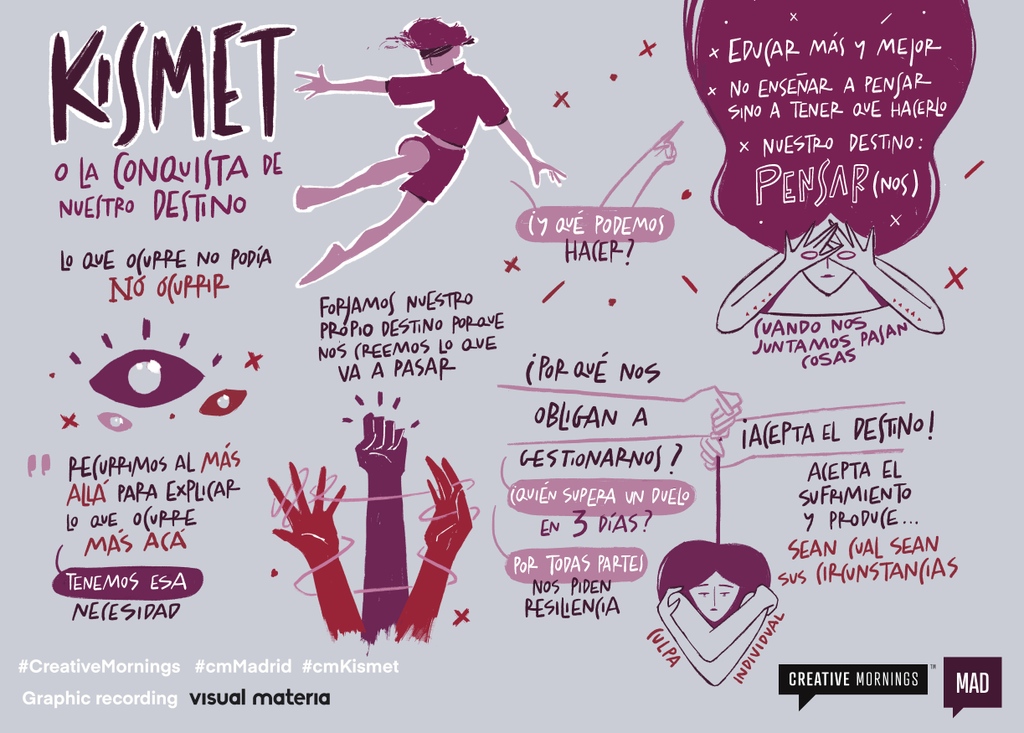 KISMET
O LA CONQUISTA DE
NUESTRO DESTINO
LO QUE OCURRE NO PODÍA
NO OCURRIR
"
RECURRIMOS AL MÁS
ALLÁ PARA EXPLICAR
LO QUE OCURRE
MÁS ACÁ
TENEMOS ESA
NECESIDAD
FORJAMOS NUESTRO
PROPIO DESTINO PORQUE
NOS CREEMOS LO QUE
VA A PASAR
¿Y QUÉ PODEMOS
HACER?
x EDUCAR MÁS Y MEJOR
x NO ENSEÑAR A PENSAR
SINO A TENER QUE HACERLO
x NUESTRO DESTINO:
PENSAR (NOS)
CUANDO NOS
JUNTAMOS PASAN
COSAS
¿POR QUÉ NOS
OBLIGAN A
GESTIONARNOS?
¿QUIÉN SUPERA UN DUELO
EN 3 DÍAS?
POR TODAS PARTES
NOS PIDEN
RESILIENCIA
¡ACEPTA EL DESTINO!
ACEPTA EL
SUFRIMIENTO
Y PRODUCE...
SEAN CUAL SEAN
SUS CIRCUNSTANCIAS
CULPA
INDIVIDUAL
#CreativeMornings #cmMadrid #cmKismet
Graphic recording visual materia
CREATIVE MORNINGS ™
MAD